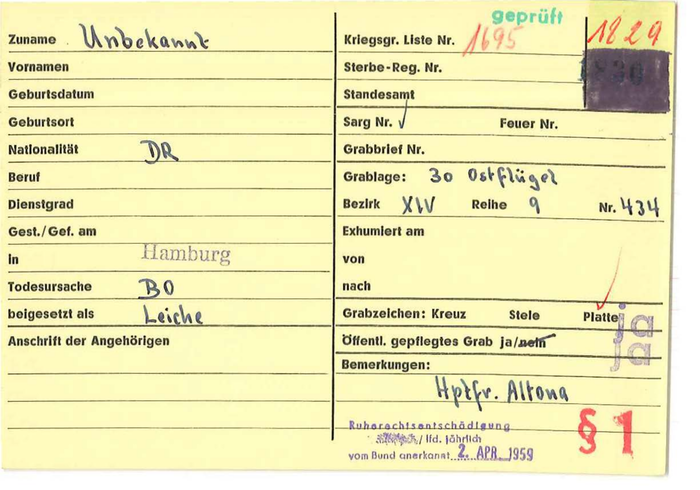 geprüft
Zuname Unbekannt
Vornamen
Geburtsdatum
Geburtsort
Nationalität DR
Beruf
Dienstgrad
Gest./Gef. am
in Hamburg
Todesursache BO
beigesetzt als Leiche
Anschrift der Angehörigen
Kriegsgr. Liste Nr. 1695 1829
Sterbe-Reg. Nr. 1830
Standesamt
Sarg Nr. Feuer Nr.
Grabbrief Nr.
Grablage: 30 Ostflügel
Bezirk XIV Reihe 9 Nr. 434
Exhumiert am
von
nach
Grabzeichen: Kreuz Stele Platte ja
Öffentl. gepflegtes Grab ja/nein ja
Bemerkungen:
Hptfr. Altona
Ruherechtsentschädigung
/ lfd. jährlich
vom Bund anerkannt 2. APR. 1959
§ 1